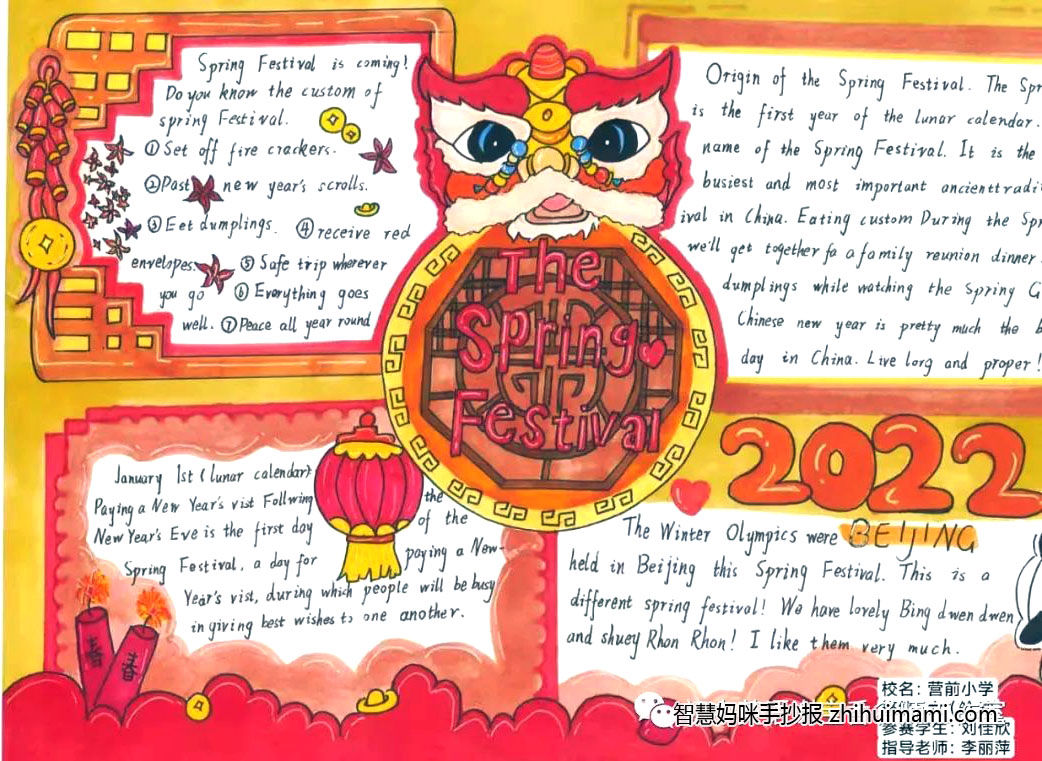 Spring Festival is coming!
Do you know the custom of
spring Festival.
①Set off fire crackers.
②Past new year's scrolls.
③Eet dumplings. ④receive red
envelopes. ⑤Safe trip wherever
you go ⑥Everything goes
well. ⑦Peace all year round
The
Spring
Festival
Origin of the Spring Festival. The Spr
is the first year of the lunar calendar.
name of the Spring Festival. It is the
busiest and most important ancienttradi
ival in China. Eating custom During the Spr
we'll get together fo a family reunion dinner.
dumplings while watching the Spring G
Chinese new year is pretty much the b
day in China. Live lorg and proper!
January 1st (lunar calendar)
Paying a New Year's vist Follwing the
New Year's Eve is the first day of the
Spring Festival, a day for paying a New-
Year's vist, during which people will be busy
in giving best wishes to one another.
春 春
2022
The Winter Olympics were BEIJING
held in Beijing this Spring Festival. This is a
different spring festival! We have lovely Bing dwen dwen
and shuey Rhon Rhon! I like them very much.
校名：营前小学
智慧妈咪手抄报 zhihuimami.com
参赛学生：刘佳欣
指导老师：李丽萍